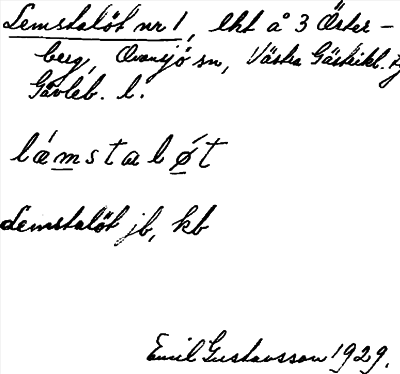 Lemstalöt nr 1, lht å 3 Öster-
berg, Ovansjö sn, Västra Gästrikl. tg
Gävleb. l.
lǽmstaløt
Lemstalöt jb, kb
Emil Gustavsson 1929.